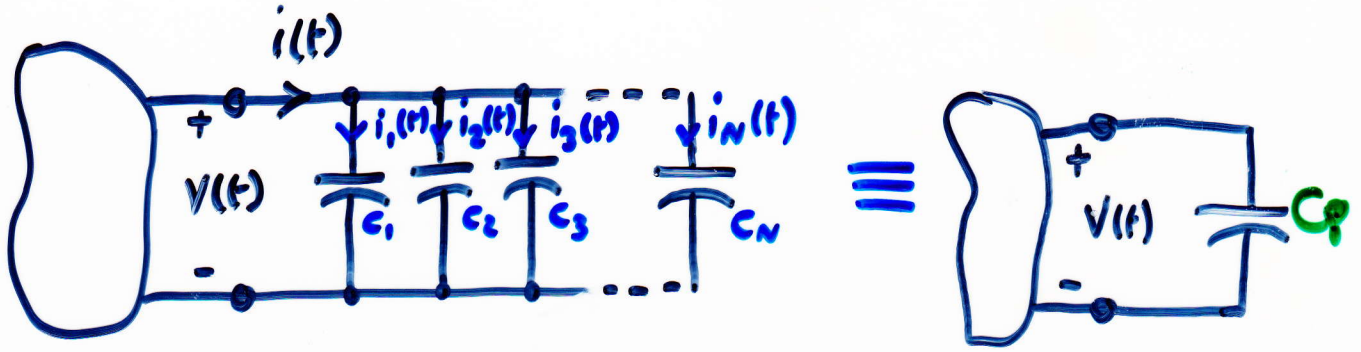 i(t)
+ i₁(t) i₂(t) i₃(t) iN(t)
V(t)
C₁ C₂ C₃ CN
-
≡
+
V(t) Cp
-